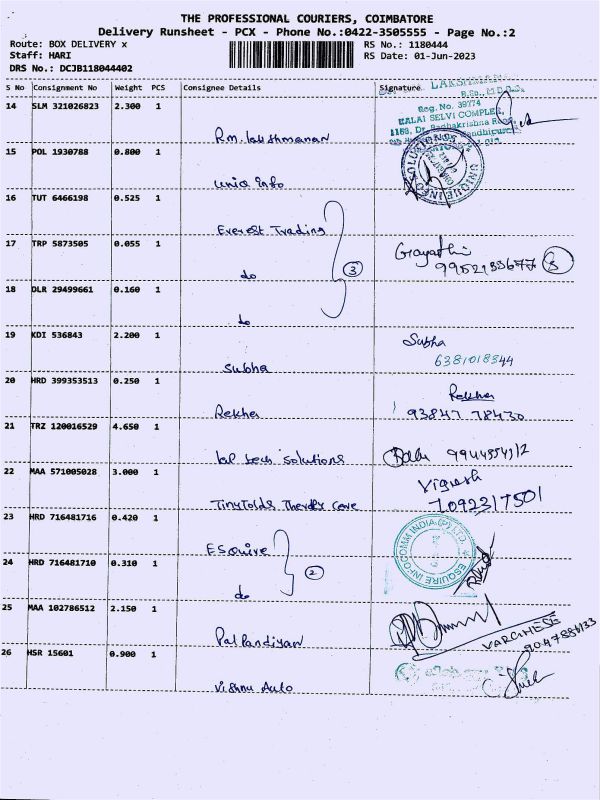 THE PROFESSIONAL COURIERS, COIMBATORE
Delivery Runsheet - PCX - Phone No.:0422-3505555 - Page No.:2
Route: BOX DELIVERY x RS No.: 1180444
Staff: HARI RS Date: 01-Jun-2023
DRS No.: DCJB118044402
S No Consignment No Weight PCS Consignee Details Signature
14 SLM 321026823 2.300 1
Reg. No. 39774
KALAI SELVI COMPLEX
Rm. Lakshmanan
15 POL 1930788 0.800 1
UNIQUE INFO SOLUTIONS
Uniq Info
16 TUT 6466198 0.525 1
Everest Trading
17 TRP 5873505 0.055 1 Gayathri
do 3 3
18 DLR 29499661 0.160 1
do
19 KDI 536843 2.200 1 Subha
6381018344
Subha
20 HRD 399353513 0.250 1 Rekha
Rekha 93847 78430
21 TRZ 120016529 4.650 1
tech Solutions
22 MAA 571005028 3.000 1 Vignesh
7092317501
23 HRD 716481716 0.420 1
ESQUIRE INFOCOMM INDIA (P) LTD
Esquire
24 HRD 716481710 0.310 1 2
do
25 MAA 102786512 2.150 1
VARGHESE
Palpandiyan
26 HSR 15601 0.900 1
Vishnu Auto